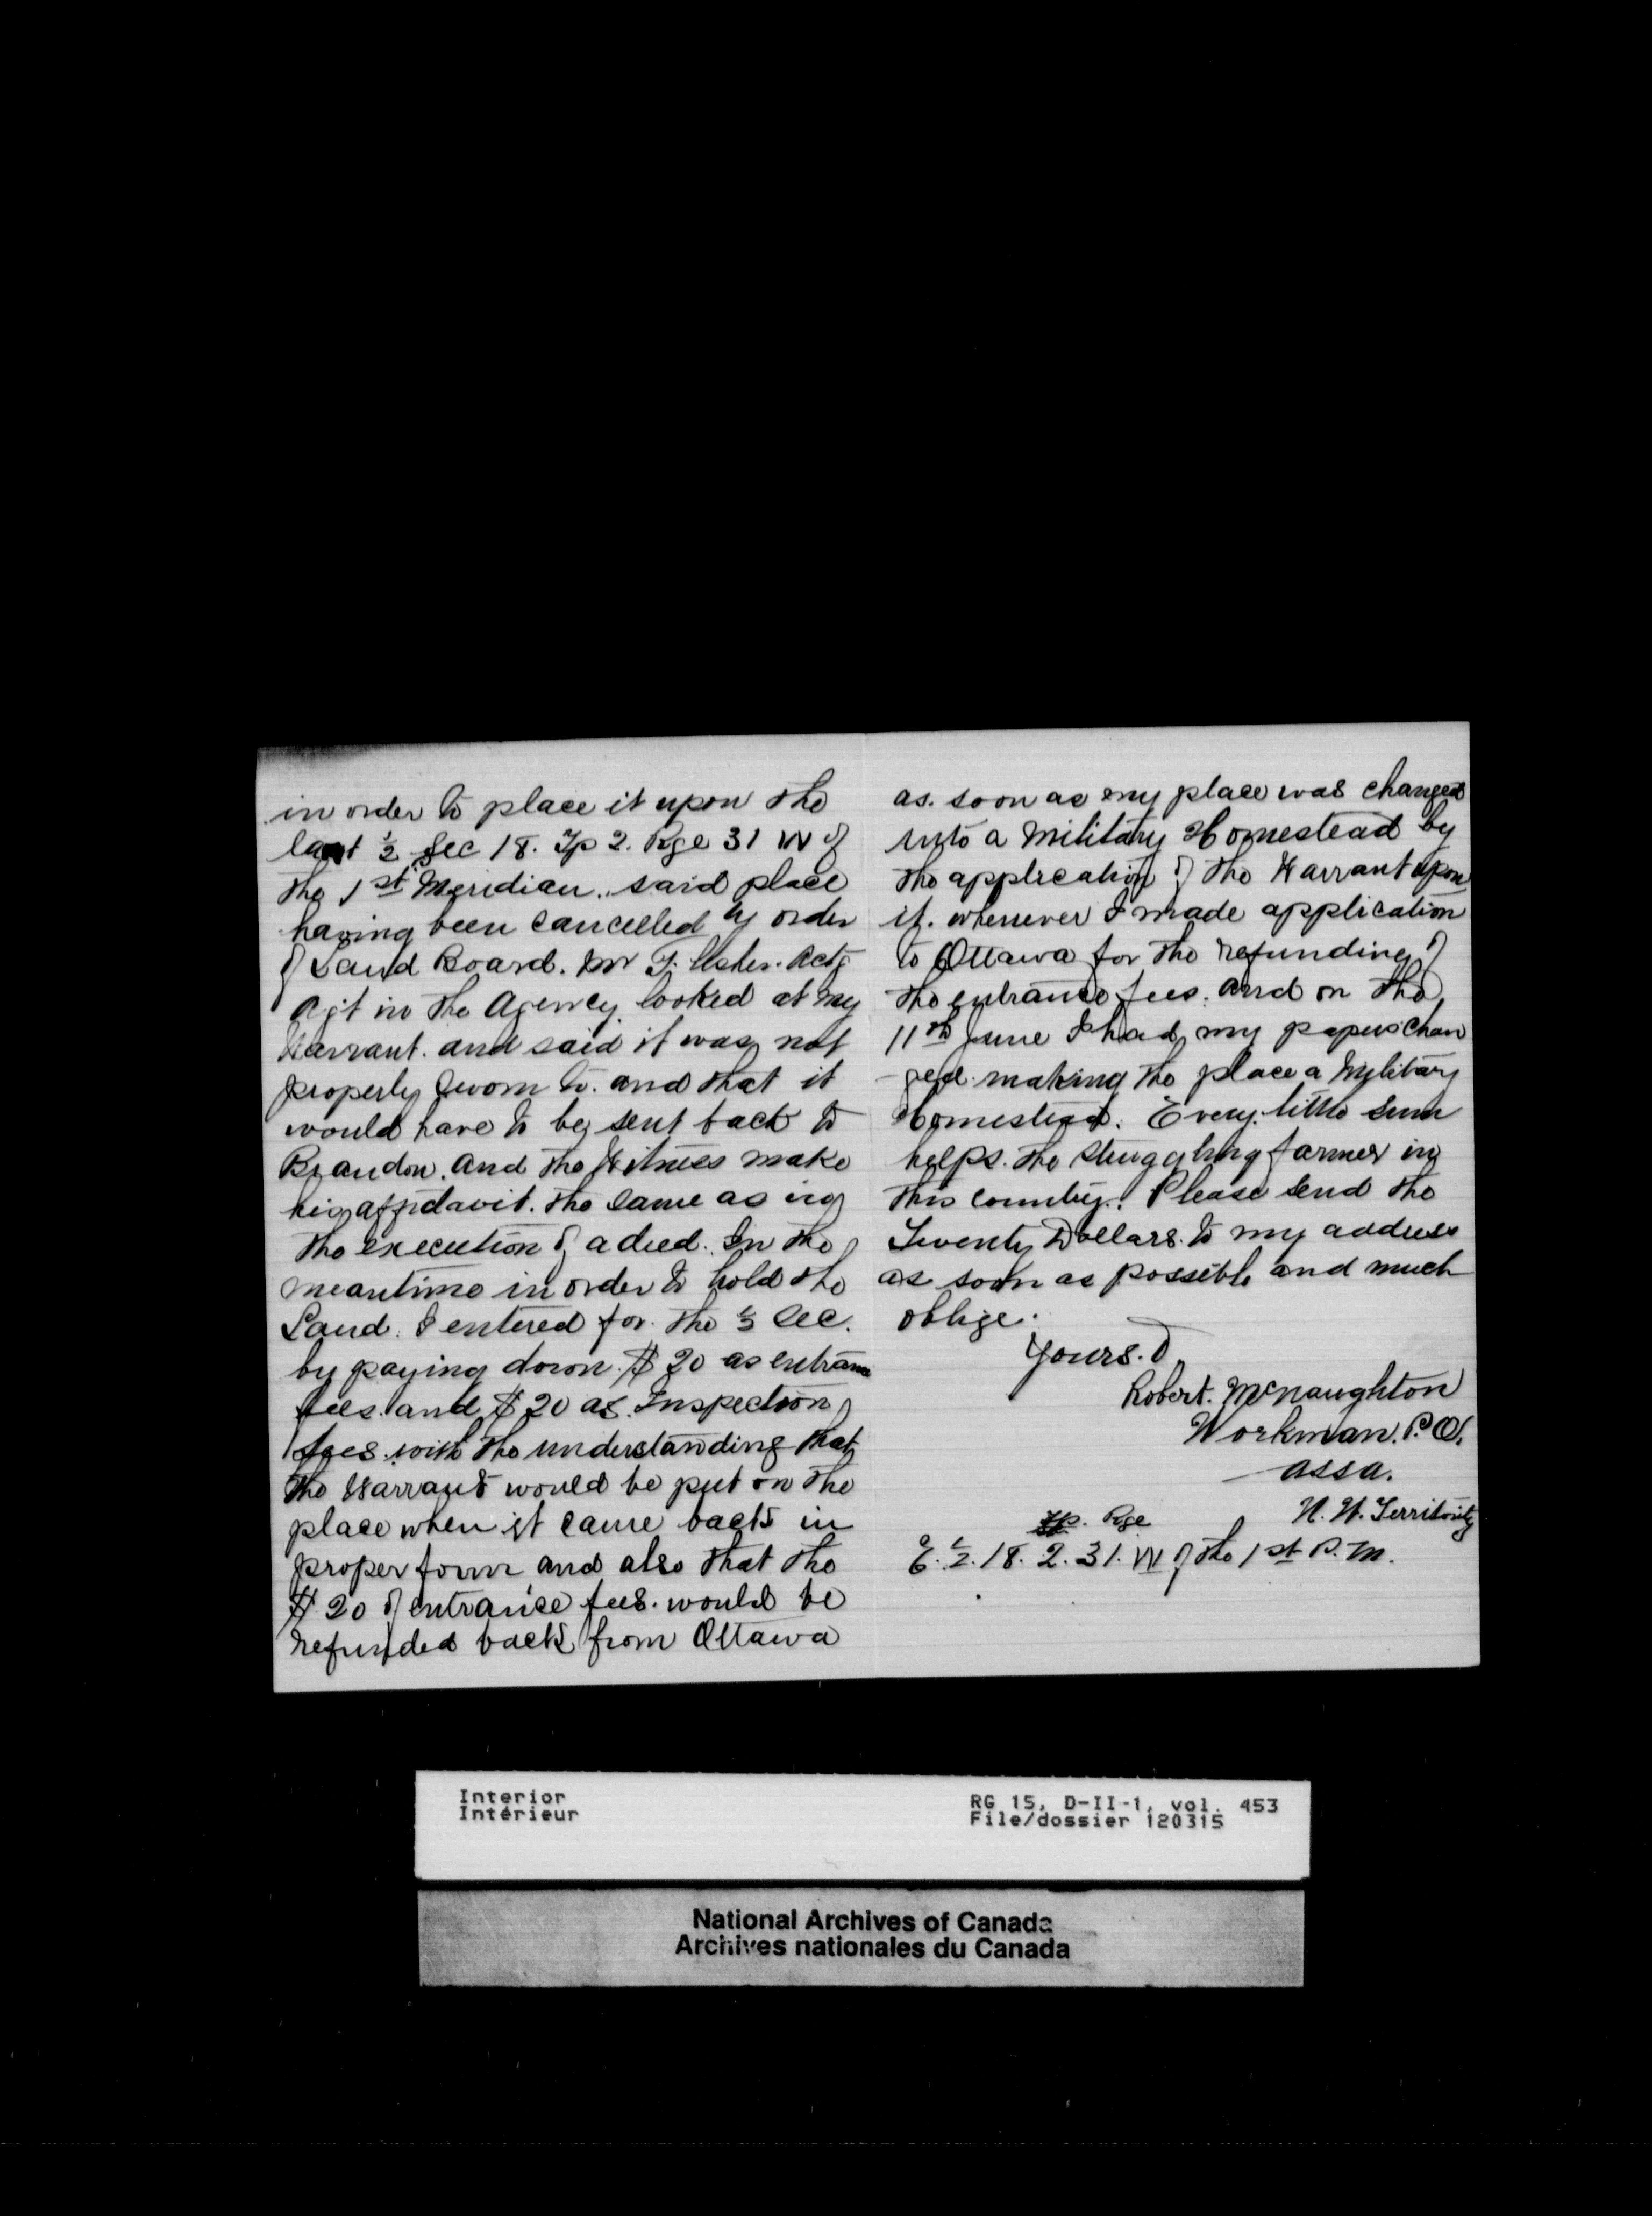 in order to place it upon the
last ½ Sec 18. Tp 2. Rge 31 W of
the 1st Meridian. said place
having been cancelled by order
of Land Board. Mr T. Usher. Actg
Agt in the Agency. looked at my
Warrant. and said it was not
properly sworn to. and that it
would have to be sent back to
Brandon. and the Witness make
his affidavit. the same as in
the execution of a deed. In the
meantime in order to hold the
Land. I entered for the ½ Sec.
by paying down $20 as entrance
fees. and $20 as Inspection
fees. with the understanding that
the Warrant would be put on the
place when it came back in
proper form and also that the
$20 of entrance fees. would be
refunded back from Ottawa
as. soon as my place was changed
into a Military Homestead by
the application of the Warrant upon
it. whenever I made application
to Ottawa for the refunding of
the entrance fees. and on the
11th June I had my papers chan
-ged. making the place a Military
Homestead. Every. little sum
helps. the struggling farmer in
this country. Please send the
Twenty Dollars. to my address
as soon as possible and much
oblige.
Yours. T
Robert. McNaughton
Workman. P.O.
Assa.
N. W. Territority
Tp. Rge
E. ½. 18. 2. 31. W of the 1st P. M.
Interior
Intérieur
RG 15, D-II-1, vol. 453
File/dossier 120315
National Archives of Canada
Archives nationales du Canada